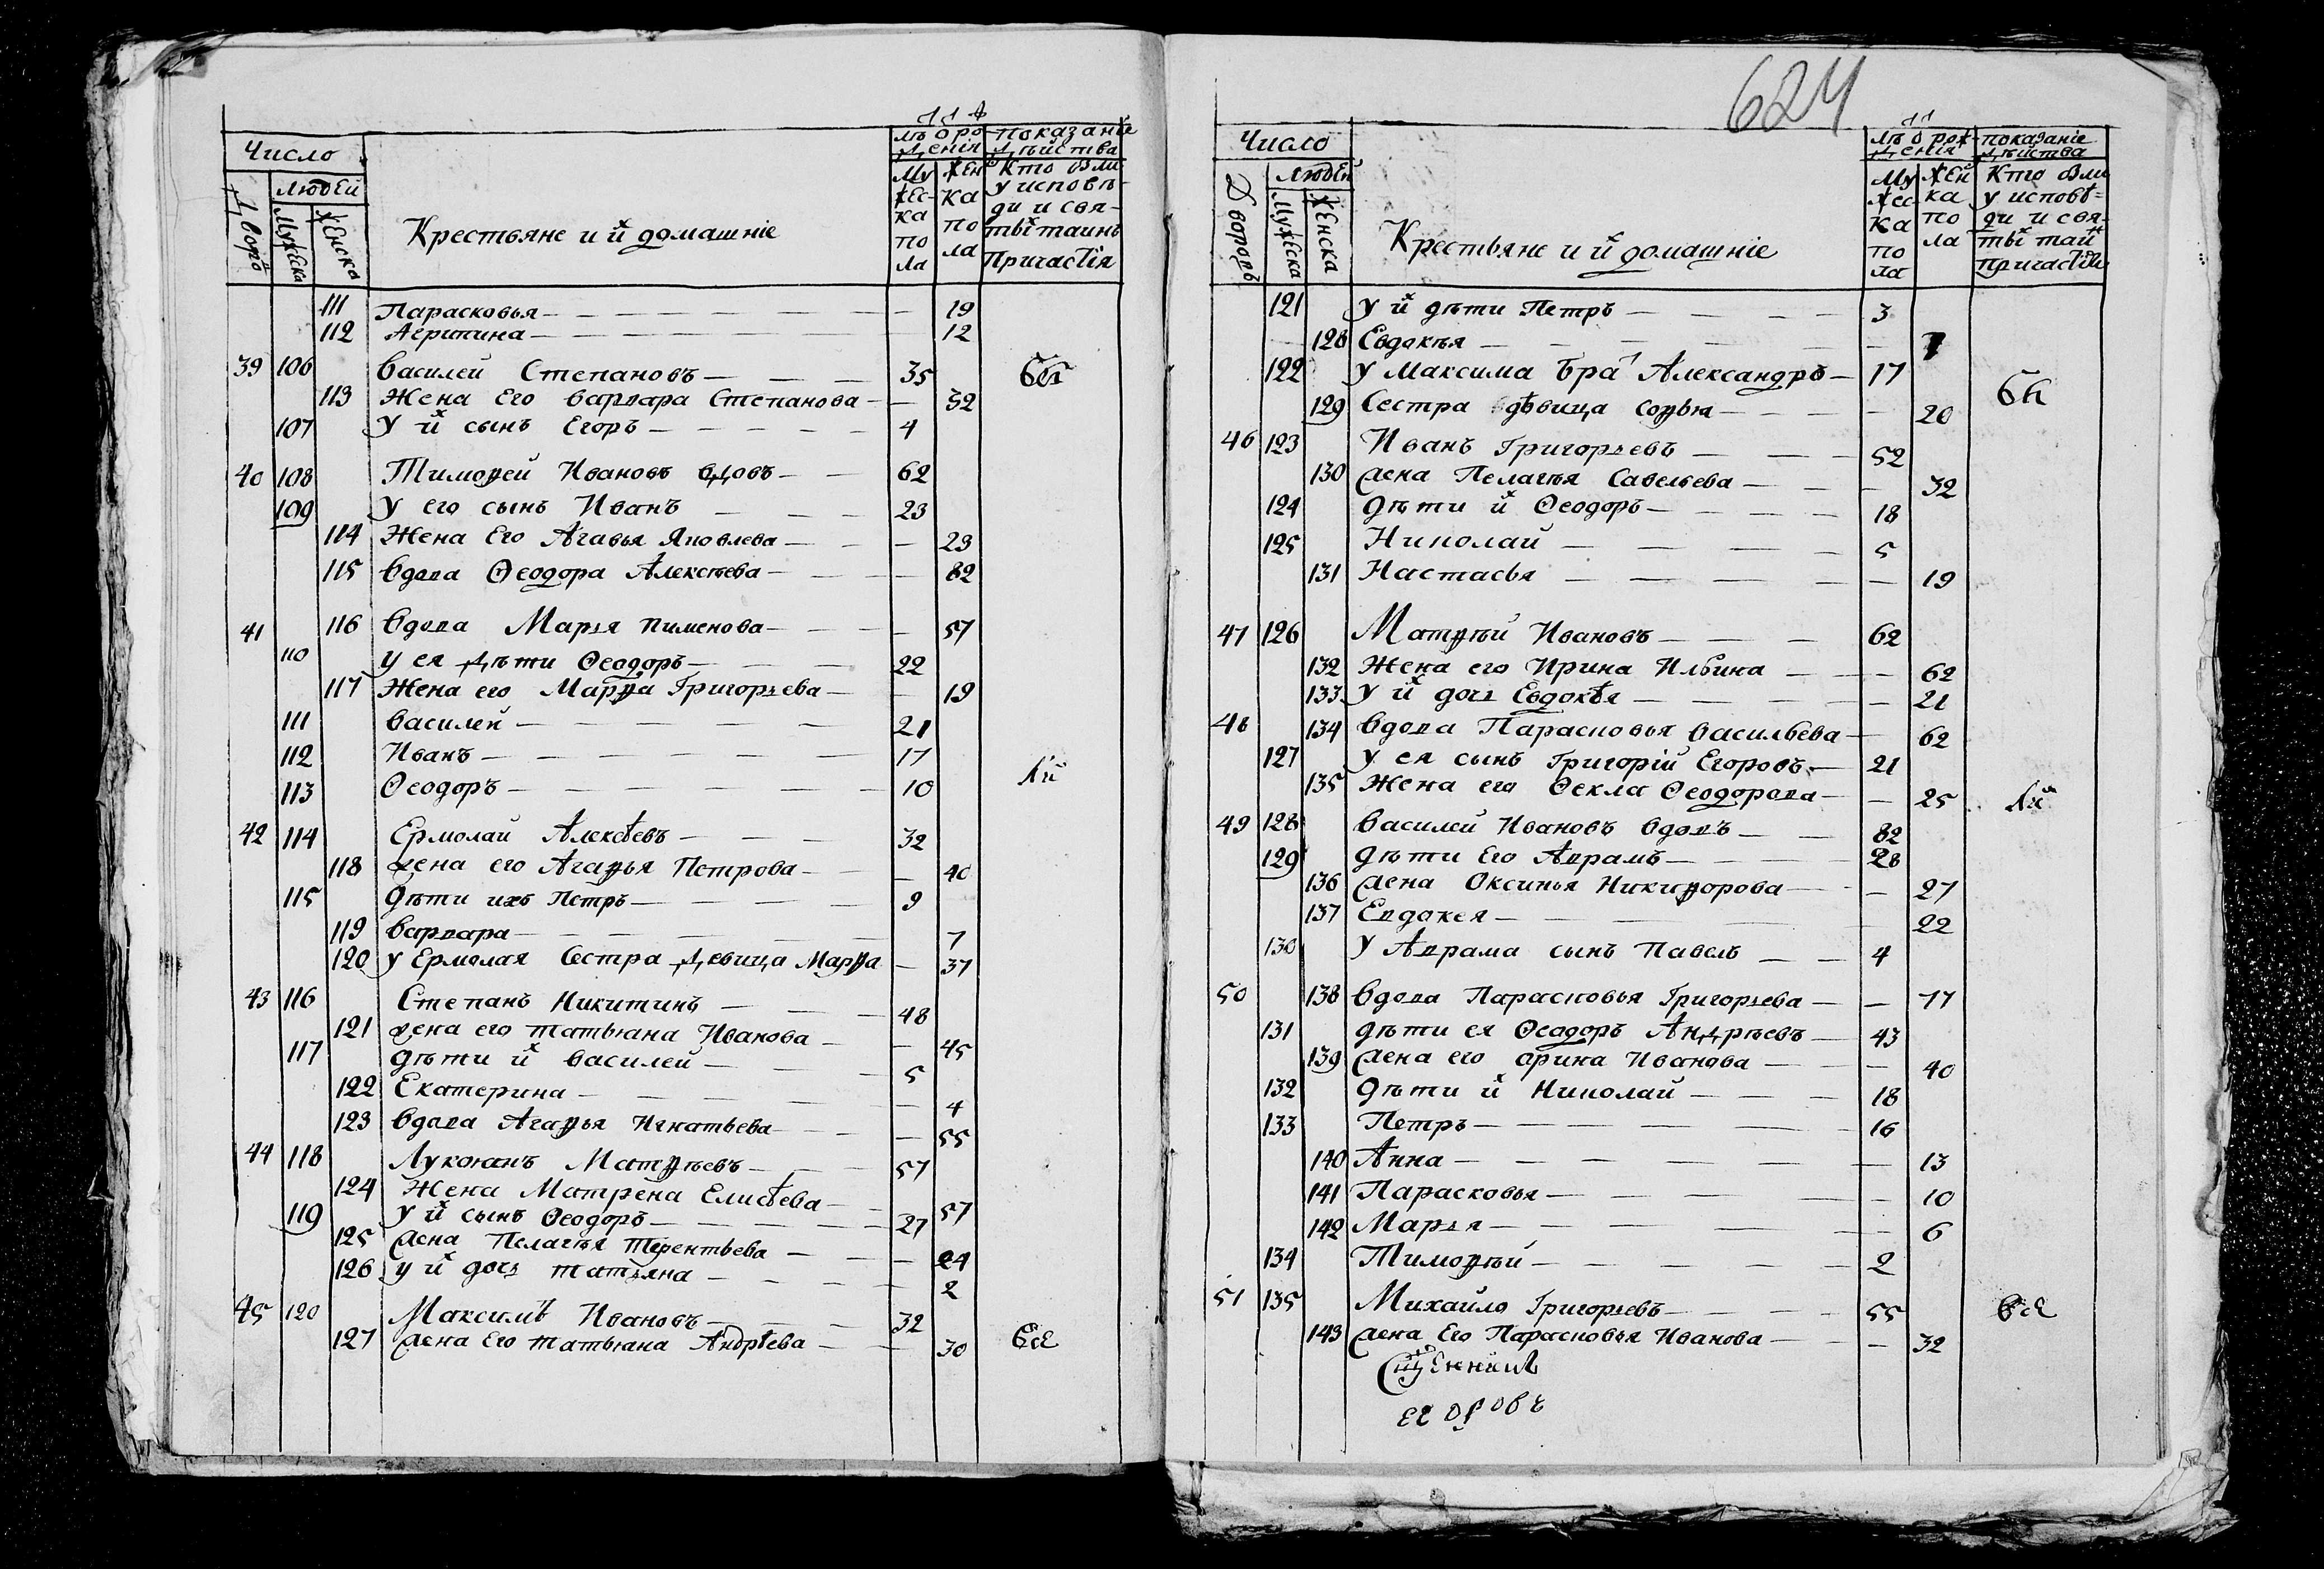 Число
Людей
Дворовъ
Мужеска
Женска
Крестьяне и их домашніе
лѣ о ро
жденія
Му
жес-
ка
по
ла
Жен
ка
по
ла
показаніе
дѣйства
Кто были
у исповѣ-
ди и свя-
тых таинъ
причастія
111 Парасковья — 19
112 Агрипина — 12
39 106 Василей Степановъ — 35
113 Жена Его Варвара Степанова — 32
107 У их сынъ Егоръ — 4
40 108 Тимофей Ивановъ вдовъ — 62
109 У его сынъ Иванъ — 23
114 Жена Его Агафья Яковлева — 23
115 Вдова Ѳеодора Алексѣева — 82
41 116 Вдова Марья Пименова — 57
110 У ея дѣти Ѳеодоръ — 22
117 Жена его Марфа Григорьева — 19
111 Василей — 21
112 Иванъ — 17
113 Ѳеодоръ — 10
42 114 Ермолай Алексѣевъ — 32
118 жена его Агафья Петрова — 40
115 Дѣти ихъ Петръ — 9
119 Варвара — 7
120 У Ермолая Сестра девица Марфа — 37
43 116 Степанъ Никитинъ — 48
121 жена его татьяна Иванова — 45
117 Дѣти их Василей — 5
122 Екатерина — 4
123 Вдова Агафья Игнатьева — 55
44 118 Лукоянъ Матфѣевъ — 57
124 Жена Матрена Елисѣева — 57
119 У их сынъ Ѳеодоръ — 27
125 жена Пелагѣя Терентьева — 24
126 у их дочь татьяна — 2
45 120 Максимъ Ивановъ — 32
127 жена Его татьяна Андрѣева — 30
624
Число
Людей
Дворовъ
Мужеска
Женска
Крестьяне и их домашніе
лѣ о рож-
денія
Му
жес
ка
по
ла
жен
ка
по
ла
показаніе
дѣйства
Кто были
у исповѣ-
ди и свя-
тых таин
причастія
121 У их дѣти Петръ — 3
128 Евдокѣя — 1
122 У Максима Бра Александръ — 17
129 Сестра дѣвица Софья — 20
46 123 Иванъ Григорьевъ — 52
130 жена Пелагѣя Савельева — 32
124 Дѣти их Ѳеодоръ — 18
125 Николай — 5
131 Настасья — 19
47 126 Матфѣй Ивановъ — 62
132 Жена его Ирина Ильина — 62
133 У их дочь Евдокѣя — 21
48 134 Вдова Парасковья Васильева — 62
127 У ея сынъ Григорій Егоровъ — 21
135 Жена его Ѳекла Ѳеодорова — 25
49 128 Василей Ивановъ Вдовъ — 82
129 Дѣти Его Аврамъ — 28
136 жена Оксинья Никифорова — 27
137 Евдокея — 22
130 У Аврама сынъ Павелъ — 4
50 138 Вдова Парасковья Григорьева — 77
131 Дѣти ея Ѳеодоръ Андрѣевъ — 43
139 жена его Орина Иванова — 40
132 Дѣти их Николай — 18
133 Петръ — 16
140 Анна — 13
141 Парасковья — 10
142 Марья — 6
134 Тимофѣй — 2
51 135 Михайло Григорьевъ — 55
143 жена Его Парасковья Иванова — 32
Егоровъ